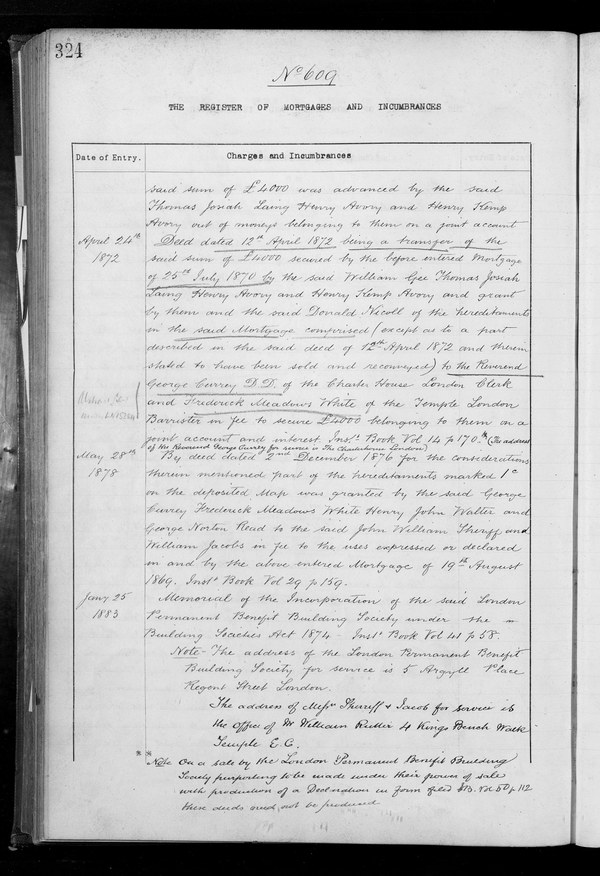 324
No 609
THE REGISTER OF MORTGAGES AND INCUMBRANCES
Date of Entry.
Charges and Incumbrances
said sum of £4000 was advanced by the said
Thomas Josiah Laing Henry Avory and Henry Kemp
Avory out of moneys belonging to them on a joint account
April 24th 1872
Deed dated 12th April 1872 being a transfer of the
said sum of £4000 secured by the before entered Mortgage
of 25th July 1870 by the said William Gee Thomas Josiah
Laing Henry Avory and Henry Kemp Avory and grant
by them and the said Donald Nicoll of the hereditaments
in the said Mortgage comprised (except as to a part
described in the said deed of 12th April 1872 and therein
stated to have been sold and reconveyed) to the Reverend
George Currey D.D. of the Charter House London Clerk
and Frederick Meadows White of the Temple London
Barrister in fee to secure £4000 belonging to them on a
joint account and interest. Inst. Book Vol 14 p 170. (The address
of the Reverend George Currey for service is The Charterhouse London)
May 28th 1878
By deed dated 2nd December 1876 for the considerations
therein mentioned part of the hereditaments marked 1c
on the deposited Map was granted by the said George
Currey Frederick Meadows White Henry John Walter and
George Norton Read to the said John William Sherriff and
William Jacobs in fee to the uses expressed or declared
in and by the above entered Mortgage of 19th August
1869. Inst. Book Vol 29 p 159.
Jany 25 1883
Memorial of the Incorporation of the said London
Permanent Benefit Building Society under the
Building Societies Act 1874 Inst. Book Vol 41 p 58.
Note - The address of the London Permanent Benefit
Building Society for service is 5 Argyll Place
Regent Street London.
The address of Messrs Sherriff & Jacob for service is
the Office of Mr William Rutter 4 Kings Bench Walk
Temple E.C.
** Note On a sale by the London Permanent Benefit Building
Society purporting to be made under their power of sale
with production of a Declaration in form filed I.B. Vol 50 p 112
these deeds need not be produced